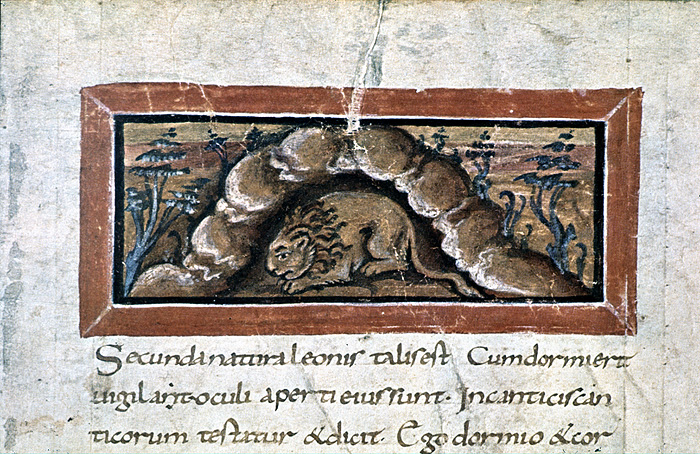 Secunda natura leonis talis est Cum dormiert
uigilant oculi aperti eius sunt. In canticis can
ticorum testatur & dicit. Ego dormio & cor